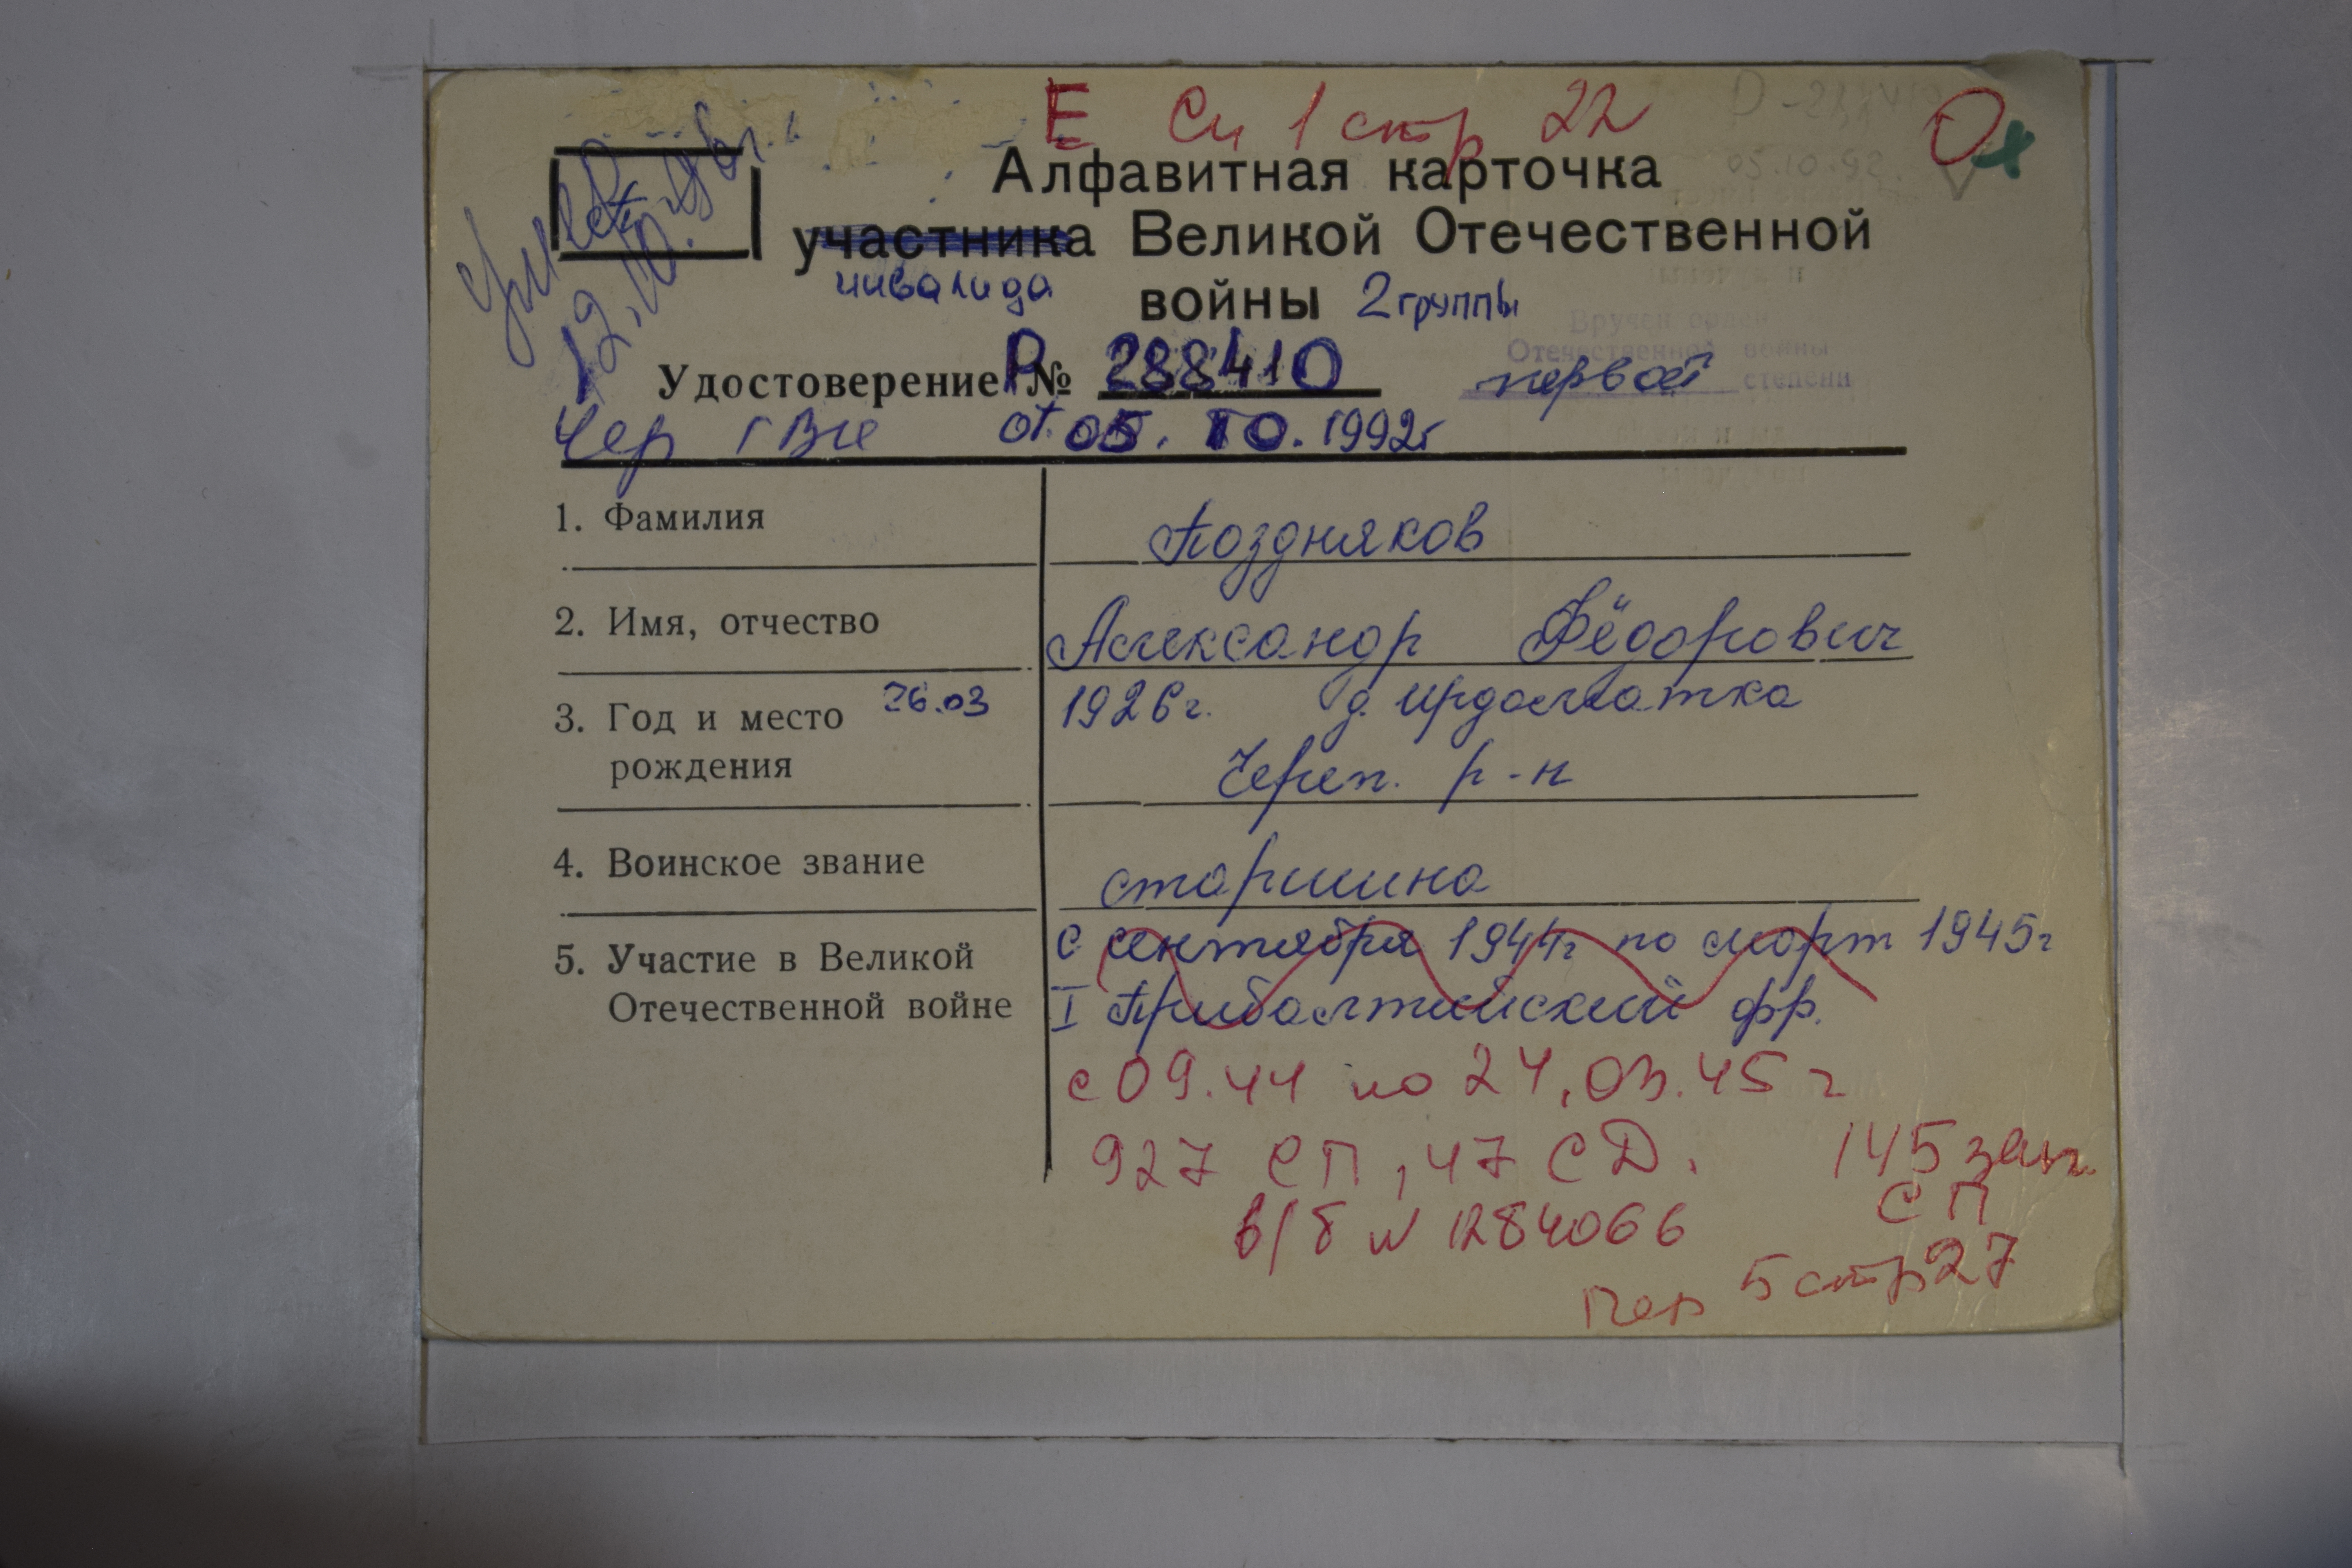 Е Сп 1 стр 22
О
Алфавитная карточка
участника Великой Отечественной
инвалида
войны 2 группы
умер
12.10.96г.
Вручен орден
Отечественной войны
первой степени
Удостоверение Р № 288410
Чер ГВК от 05.10.1992г
1. Фамилия Поздняков
2. Имя, отчество Александр Фёдорович
3. Год и место 26.03 1926г. д. Ирдоматка
рождения Череп. р-н
4. Воинское звание старшина
5. Участие в Великой с сентября 1944г по март 1945г
Отечественной войне I Прибалтийский фр.
с 09.44 по 24.03.45 г
927 СП, 47 СД. 145 зап.
СП
в/б № 1284066
Пер 5 стр 27